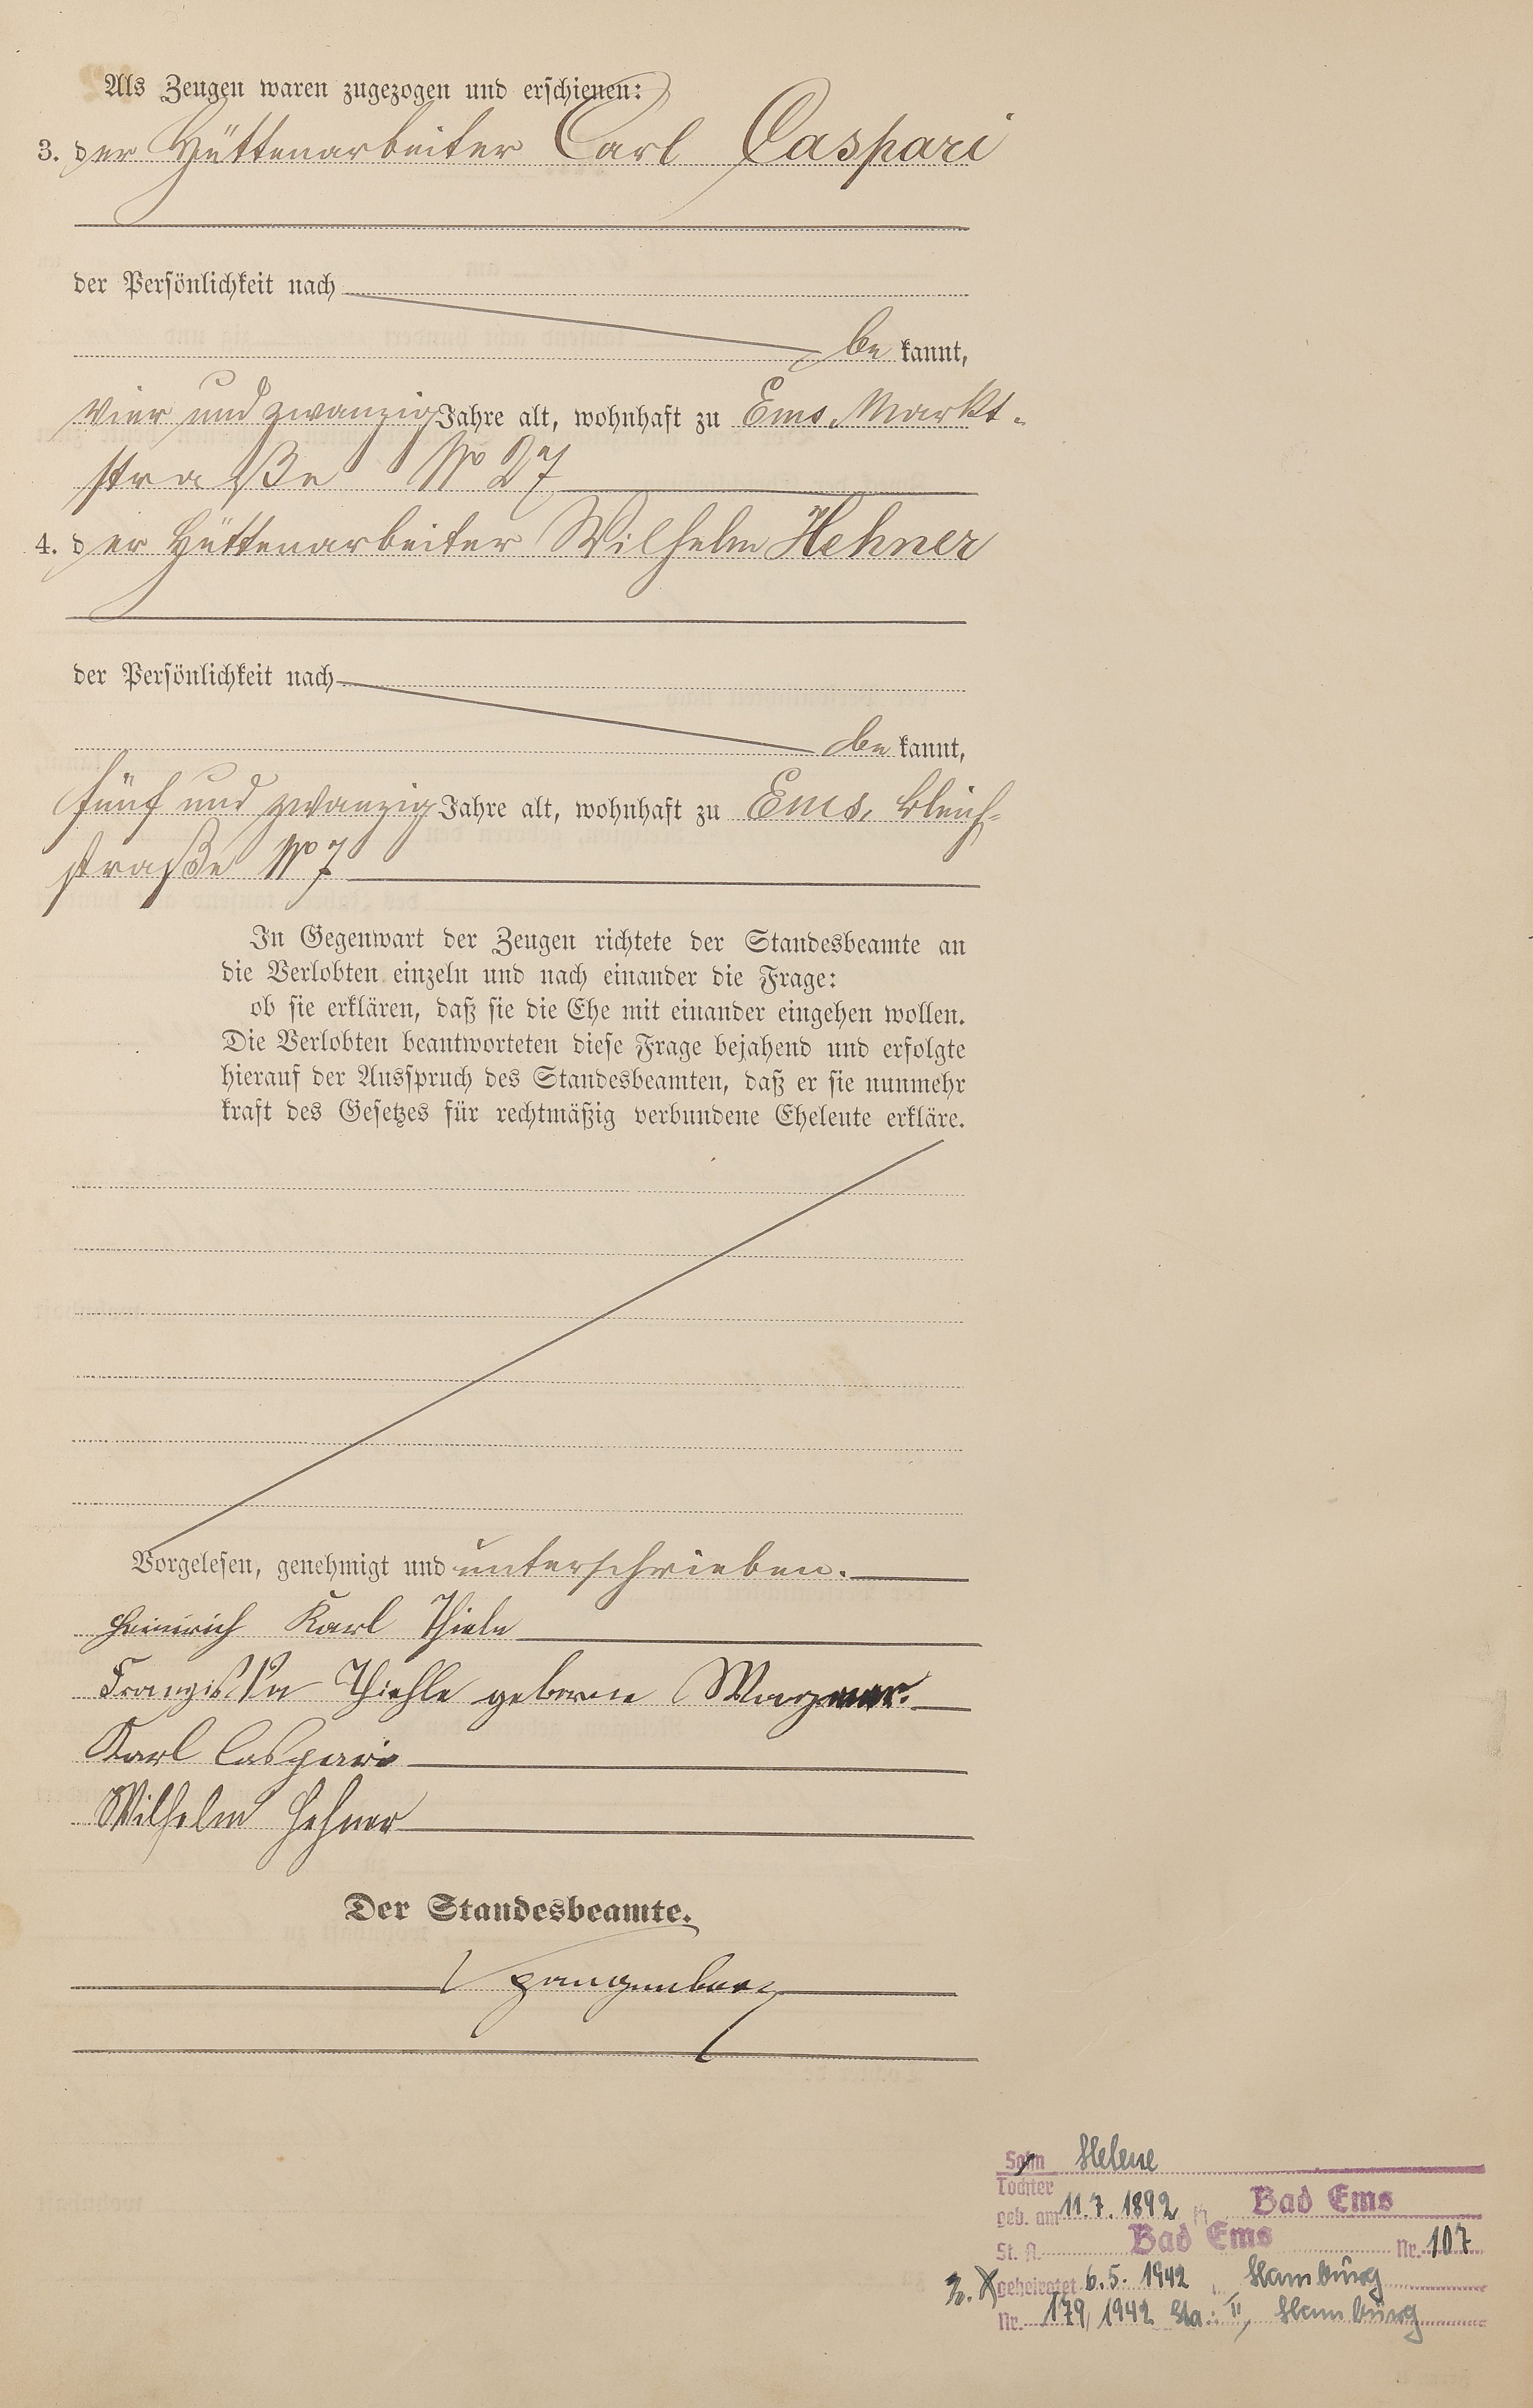 Als Zeugen waren zugezogen und erschienen:
3. der Hüttenarbeiter Carl Caspari
der Persönlichkeit nach
be kannt,
vier und zwanzig Jahre alt, wohnhaft zu Ems, Markt-
straße No 27
4. der Hüttenarbeiter Wilhelm Hehner
der Persönlichkeit nach
be kannt,
fünf und zwanzig Jahre alt, wohnhaft zu Ems, Bleich-
straße No 7
In Gegenwart der Zeugen richtete der Standesbeamte an
die Verlobten einzeln und nach einander die Frage:
ob sie erklären, daß sie die Ehe mit einander eingehen wollen.
Die Verlobten beantworteten diese Frage bejahend und erfolgte
hierauf der Ausspruch des Standesbeamten, daß er sie nunmehr
kraft des Gesetzes für rechtmäßig verbundene Eheleute erkläre.
Vorgelesen, genehmigt und unterschrieben.
Heinrich Karl Thiele
Thiehle geborene
Karl Caspari
Wilhelm Hehner
Der Standesbeamte.
Spangenberg
Sohn Helene
Tochter
geb. am 11.7.1892 Bad Ems
St. A. Bad Ems Nr. 107
2. X geheiratet 6.5.1942 Hamburg
Nr. 179/1942 Sta.: II, Hamburg